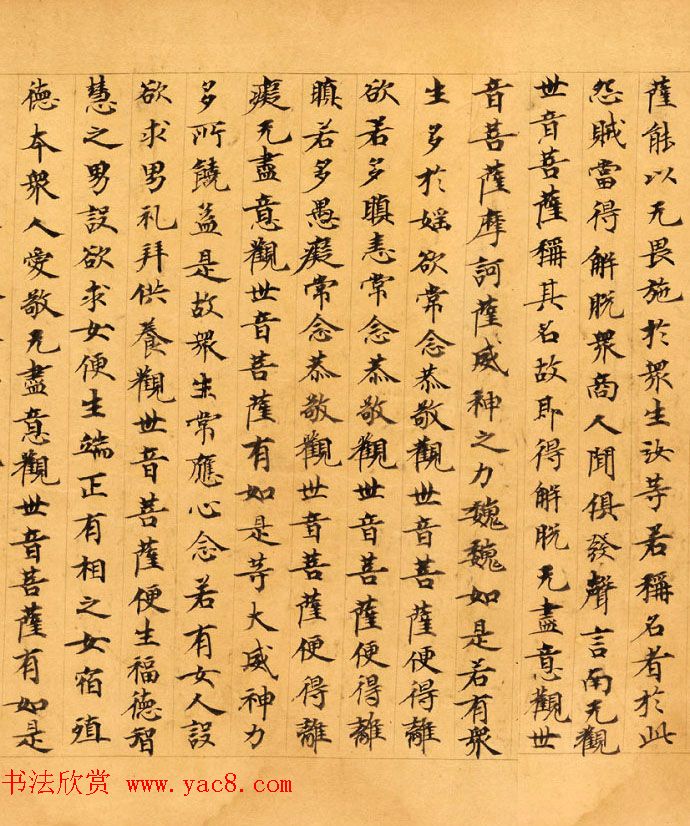 薩能以无畏施於衆生汝等若稱名者於此
怨賊當得解脱衆商人聞俱發聲言南无觀
世音菩薩稱其名故即得解脱无盡意觀世
音菩薩摩訶薩威神之力巍巍如是若有衆
生多於婬欲常念恭敬觀世音菩薩便得離
欲若多瞋恚常念恭敬觀世音菩薩便得離
瞋若多愚癡常念恭敬觀世音菩薩便得離
癡无盡意觀世音菩薩有如是等大威神力
多所饒益是故衆生常應心念若有女人設
欲求男礼拜供養觀世音菩薩便生福德智
慧之男設欲求女便生端正有相之女宿殖
德本衆人愛敬无盡意觀世音菩薩有如是
书法欣赏 www.yac8.com